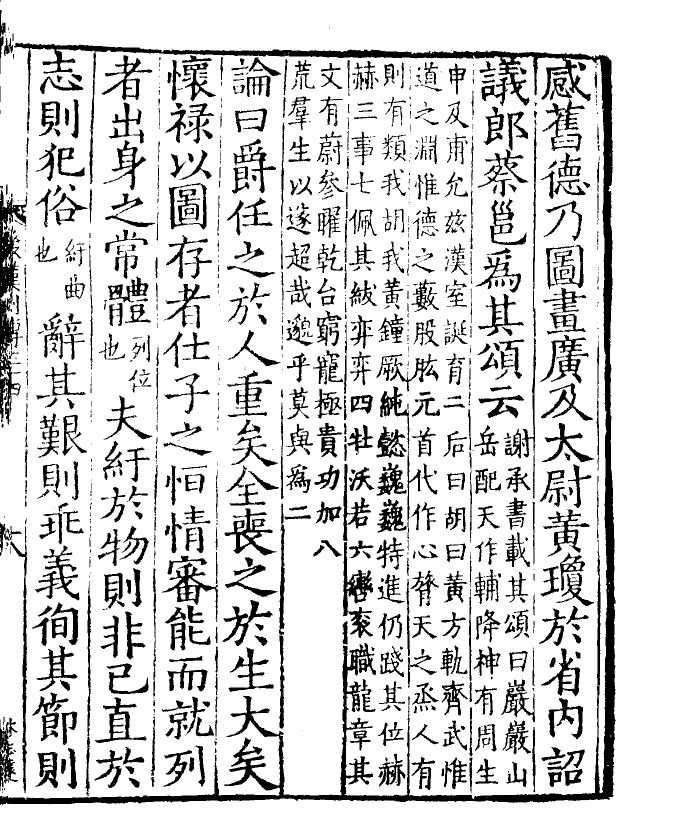 感舊德乃圖畫廣及太尉黄瓊於省内詔
議郎蔡邕爲其頌云
謝承書載其頌曰巖巖山
岳配天作輔降神有周生
申及甫允兹漢室誕育二后曰胡曰黄方軌齊武惟
道之淵惟德之藪股肱元首代作心膂天之烝人有
則有類我胡我黄鐘厥純懿巍巍特進仍踐其位赫
赫三事七佩其紱弈弈四牡沃若六轡衮職龍章其
文有蔚參曜乾台窮寵極貴功加八
荒羣生以遂超哉邈乎莫與爲二
論曰爵任之於人重矣全喪之於生大矣
懷禄以圖存者仕子之恒情審能而就列
者出身之常體列位也夫紆於物則非己直於
志則犯俗紆曲也辭其艱則乖義徇其節則